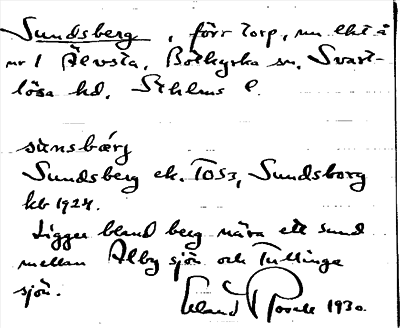 Sundsberg, förr torp, nu lht å
nr 1 Älvsta, Botkyrka sn, Svart-
lösa hd, Sthlms l.
sùnsbærj
Sundsberg ek. TOS3, Sundsborg
kb 1924.
Ligger bland berg nära ett sund
mellan Alby sjön och Tullinge
sjön.
Erland 1930.